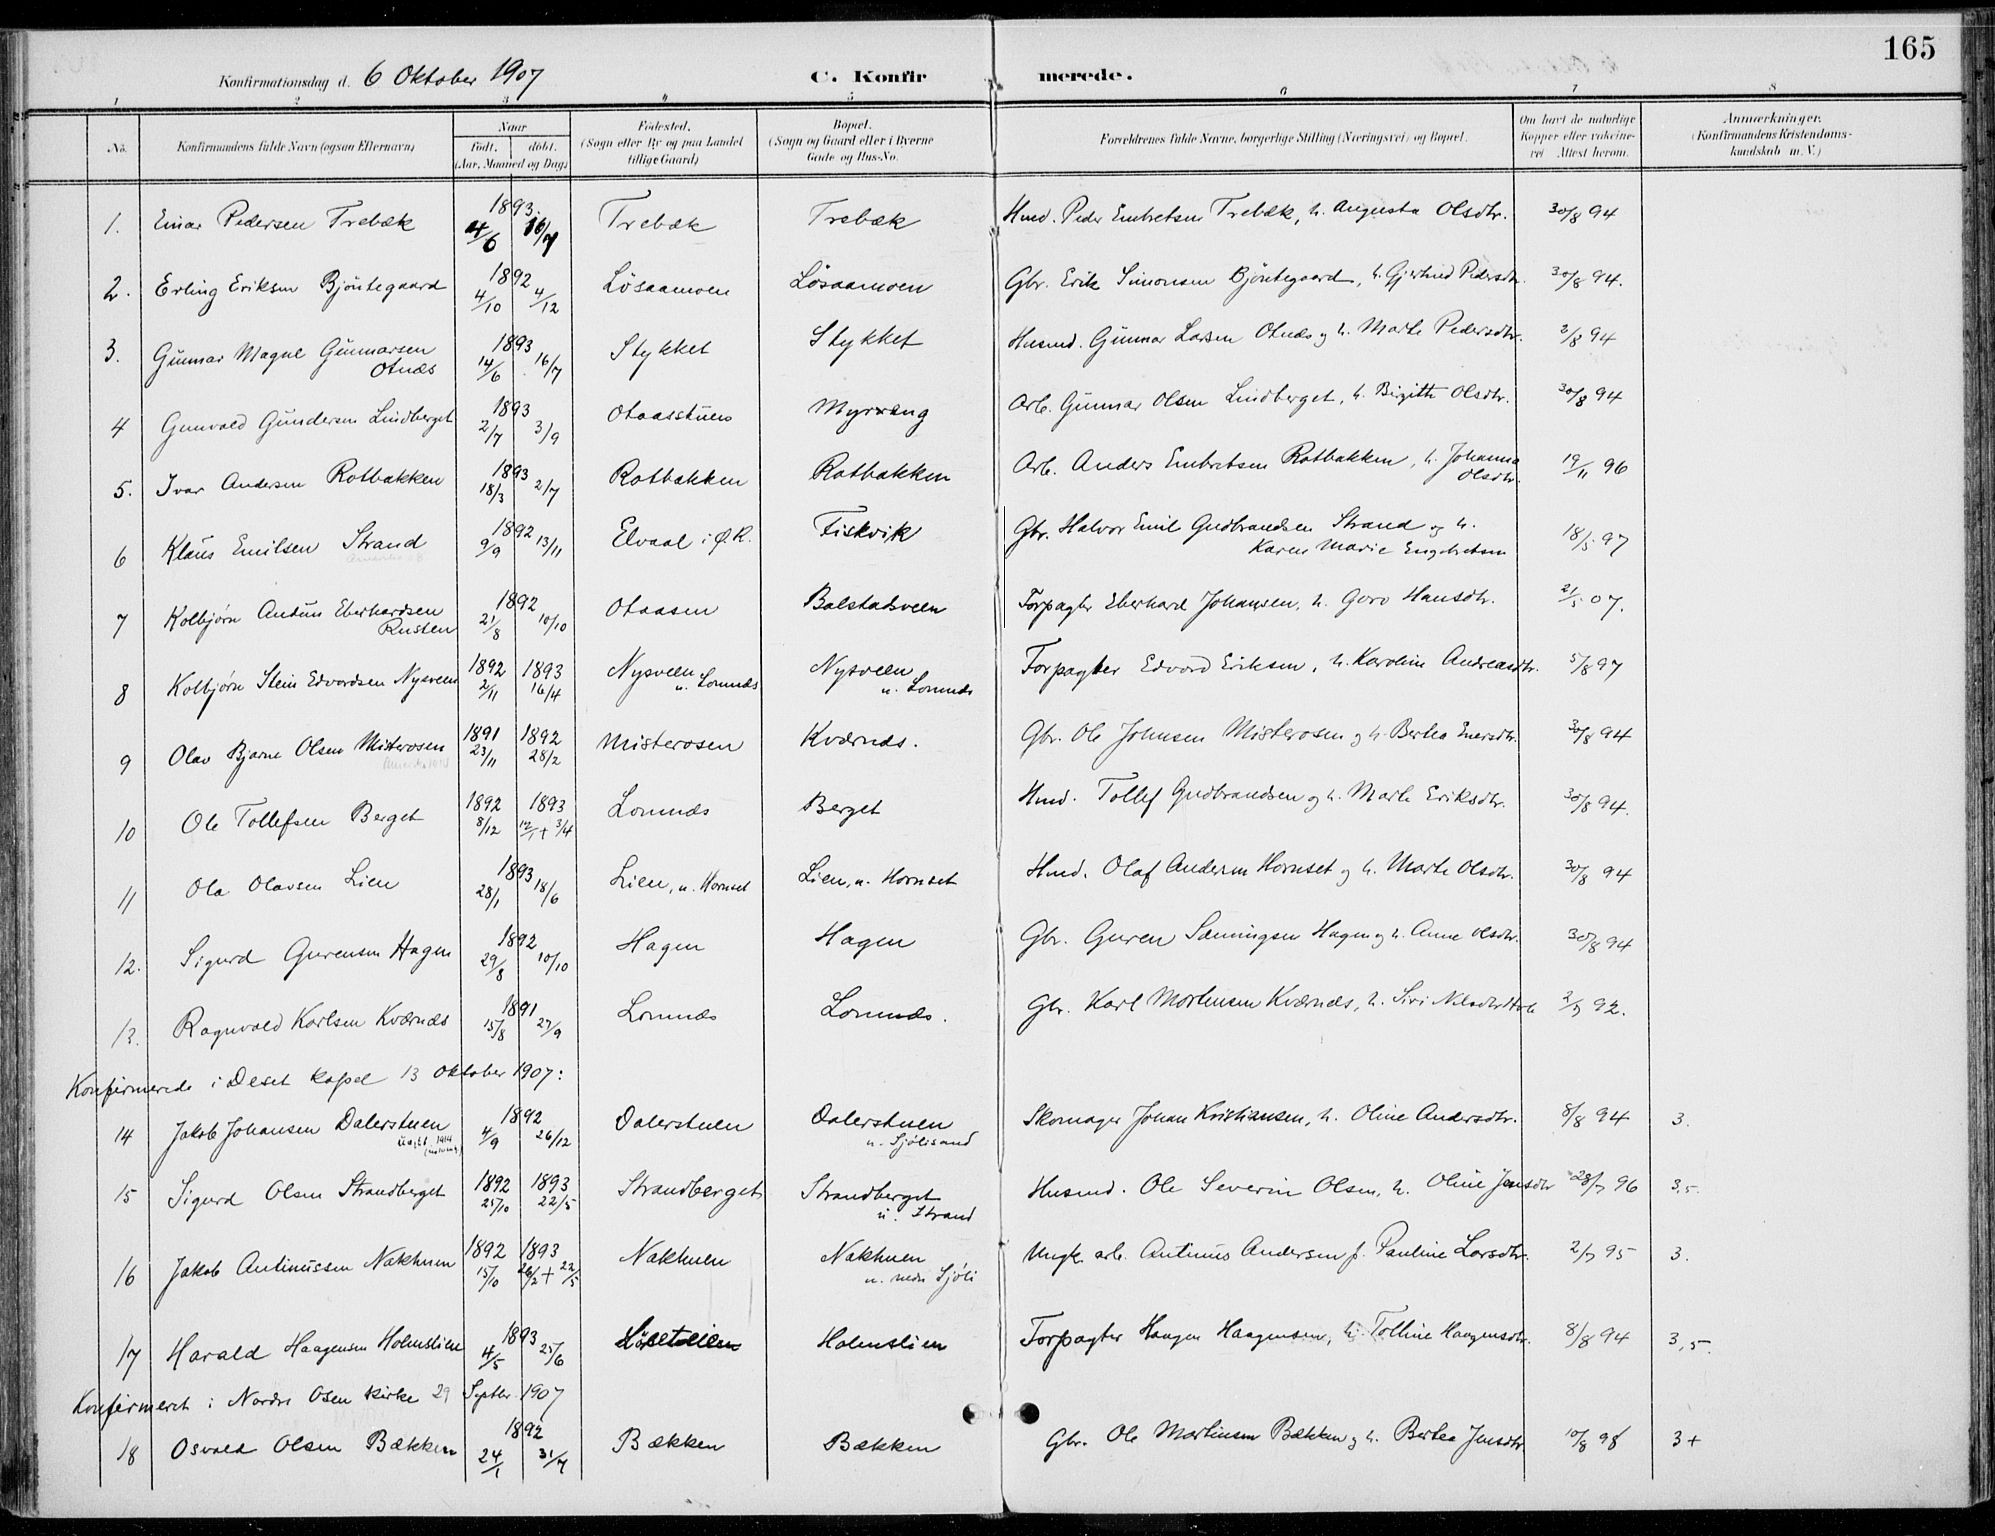 165
Konfirmationsdag d. 6 Oktober 1907 C. Konfirmerede.
1 2 3 4 5 6 7 8
No. Konfirmandens fulde Navn (ogsaa Efternavn) Naar født. døbt. (Aar, Maaned og Dag) Fødested. (Sogn eller By og paa Landet tillige Gaard) Bopæl. (Sogn og Gaard eller i Byerne Gade og Hus-No. Forældrenes fulde Navne, borgerlige Stilling (Næringsvei) og Bopæl. Om havt de naturlige Kopper eller vakcineret Attest herom. Anmærkninger. (Konfirmandens Kristendomskundskab m. V.)
1. Einar Pedersen Trebæk 1893 4/6 16/7 Trebæk Trebæk Husd. Peder Embretsen Trebæk, h. Augusta Olsdtr. 30/8 94
2. Erling Eriksen Bjöntegaard 1892 4/10 4/12 Lösaamoen Lösaamoen Gbr. Erik Simonsen Bjöntegaard, h. Gjertrud Pedersdtr. 30/8 94.
3. Gunnar Magne Gunnarsen Otnæs 1893 14/6 16/7 Stykket Stykket Husmd. Gunnar Larsen Otnæs og h. Marte Pedersdtr. 3/8 94
4 Gunvald Gundersen Lindberget 1893 2/7 3/9 Otaasstuen Myrvang Arb. Gunnar Olsen Lindberget, h. Birgitte Olsdtr. 30/8 94
5. Ivar Andersen Rotbakken 1893 18/3 2/7 Rotbakken Rotbakken Arb. Anders Embretsen Rotbakken, h. Johanna Olsdtr. 19/11 96
6 Klaus Emilsen Strand 1892 9/9 13/11 Elvaal i Ø.R. Fiskvik Gbr. Halvor Emil Gudbrandsen Strand og h. Karen Marie Engebretsen 18/5 97
7 Kolbjørn Antun Eberhardsen Rusten 1892 21/8 10/10 Otaasen Bolstadsveen Forpagter Eberhard Johansen, h. Goro Hansdtr. 21/5 07.
8 Kolbjørn Stein Edvardsen Nysveen 1892 2/11 1893 16/4 Nysveen u. Lomnæs Nysveen u. Lomnæs Forpagter Edvard Eriksen, h. Karoline Andreasdtr. 5/8 97
9 Olav Bjarne Olsen Misterosen 1891 23/11 1892 28/2 Misterosen Kværnæs. Gbr. Ole Johnsen Misterosen og h. Bertea Enersdtr. 30/8 94
10 Ole Tollefsen Berget 1892 8/12 1893 12/1 + 3/4 Lomnæs Berget Hmd. Tollef Gudbrandsen og h. Marte Eriksdtr. 30/8 94.
11 Ola Olavsen Lien 1893 28/1 18/6 Lien, u. Hornset Lien, u. Hornset Hmd. Olaf Andersen Hornset og h. Marte Olsdtr. 30/8 94
12. Sigurd Gurensen Hagen 1892 29/8 10/10 Hagen Hagen Gbr. Guren Sæmingsen Hagen og h. Anne Olsdtr. 30/8 94
13. Ragnvald Karlsen Kværnæs 1891 15/8 27/9 Lomnæs Lomnæs. Gbr. Karl Mortensen Kværnæs, h. Siri Nilsdtr 92.
Konfirmerede i Deset kapel 13 Oktober 1907:
14 Jakob Johansen Dalerstuen 1892 4/9 26/12 Dalerstuen Dalerstuen u. Sjölisand Skomager Johan Kristiansen, h. Oline Andersdtr. 8/8 94 3.
15 Sigurd Olsen Strandberget 1892 25/10 1893 22/5 Strandberget Strandberget u. Strand Husmd. Ole Severin Olsen, h. Oline Jensdtr 28/7 96 3,5.
16 Jakob Antinussen Nakhuen 1892 15/10 1893 26/2 + 22/5 Nakhuen Nakhuen u. nedre Sjöli Ungk. arb. Antinus Andersen p. Pauline Larsdtr. 2/7 95 3.
17 Harald Haagensen Holmslien 1893 4/5 25/6 Holmslien Forpagter Haagen Haagensen, h. Tolline Haagensdtr. 8/8 94 3,5.
Konfirmeret i Nordre Osen kirke 29 Septbr. 1907
18 Osvald Olsen Bækken 1892 24/1 31/7 Bækken Bækken Gbr. Ole Martinsen Bækken og h. Bertea Jensdtr. 10/8 98 3+